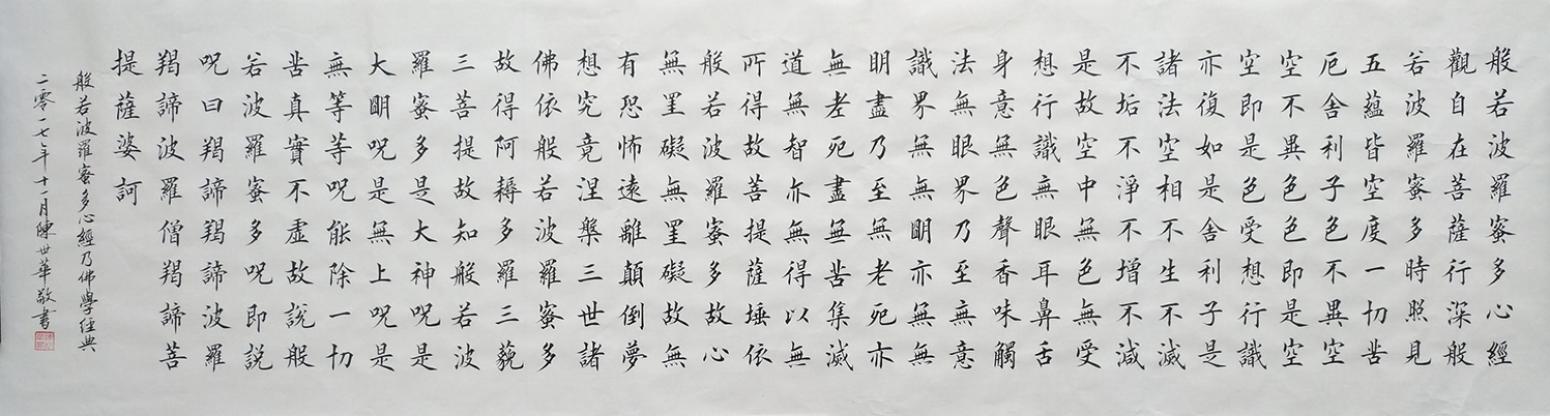 般若波羅蜜多心經
觀自在菩薩行深般
若波羅蜜多時照見
五蘊皆空度一切苦
厄舍利子色不異空
空不異色色即是空
空即是色受想行識
亦復如是舍利子是
諸法空相不生不滅
不垢不淨不增不減
是故空中無色無受
想行識無眼耳鼻舌
身意無色聲香味觸
法無眼界乃至無意
識界無無明亦無無
明盡乃至無老死亦
無老死盡無苦集滅
道無智亦無得以無
所得故菩提薩埵依
般若波羅蜜多故心
無罣礙無罣礙故無
有恐怖遠離顛倒夢
想究竟涅槃三世諸
佛依般若波羅蜜多
故得阿耨多羅三藐
三菩提故知般若波
羅蜜多是大神呪是
大明呪是無上呪是
無等等呪能除一切
苦真實不虛故說般
若波羅蜜多呪即説
呪曰羯諦羯諦波羅
羯諦波羅僧羯諦菩
提薩婆訶
般若波羅蜜多心經乃佛學經典
二零一七年十一月陳世華敬書